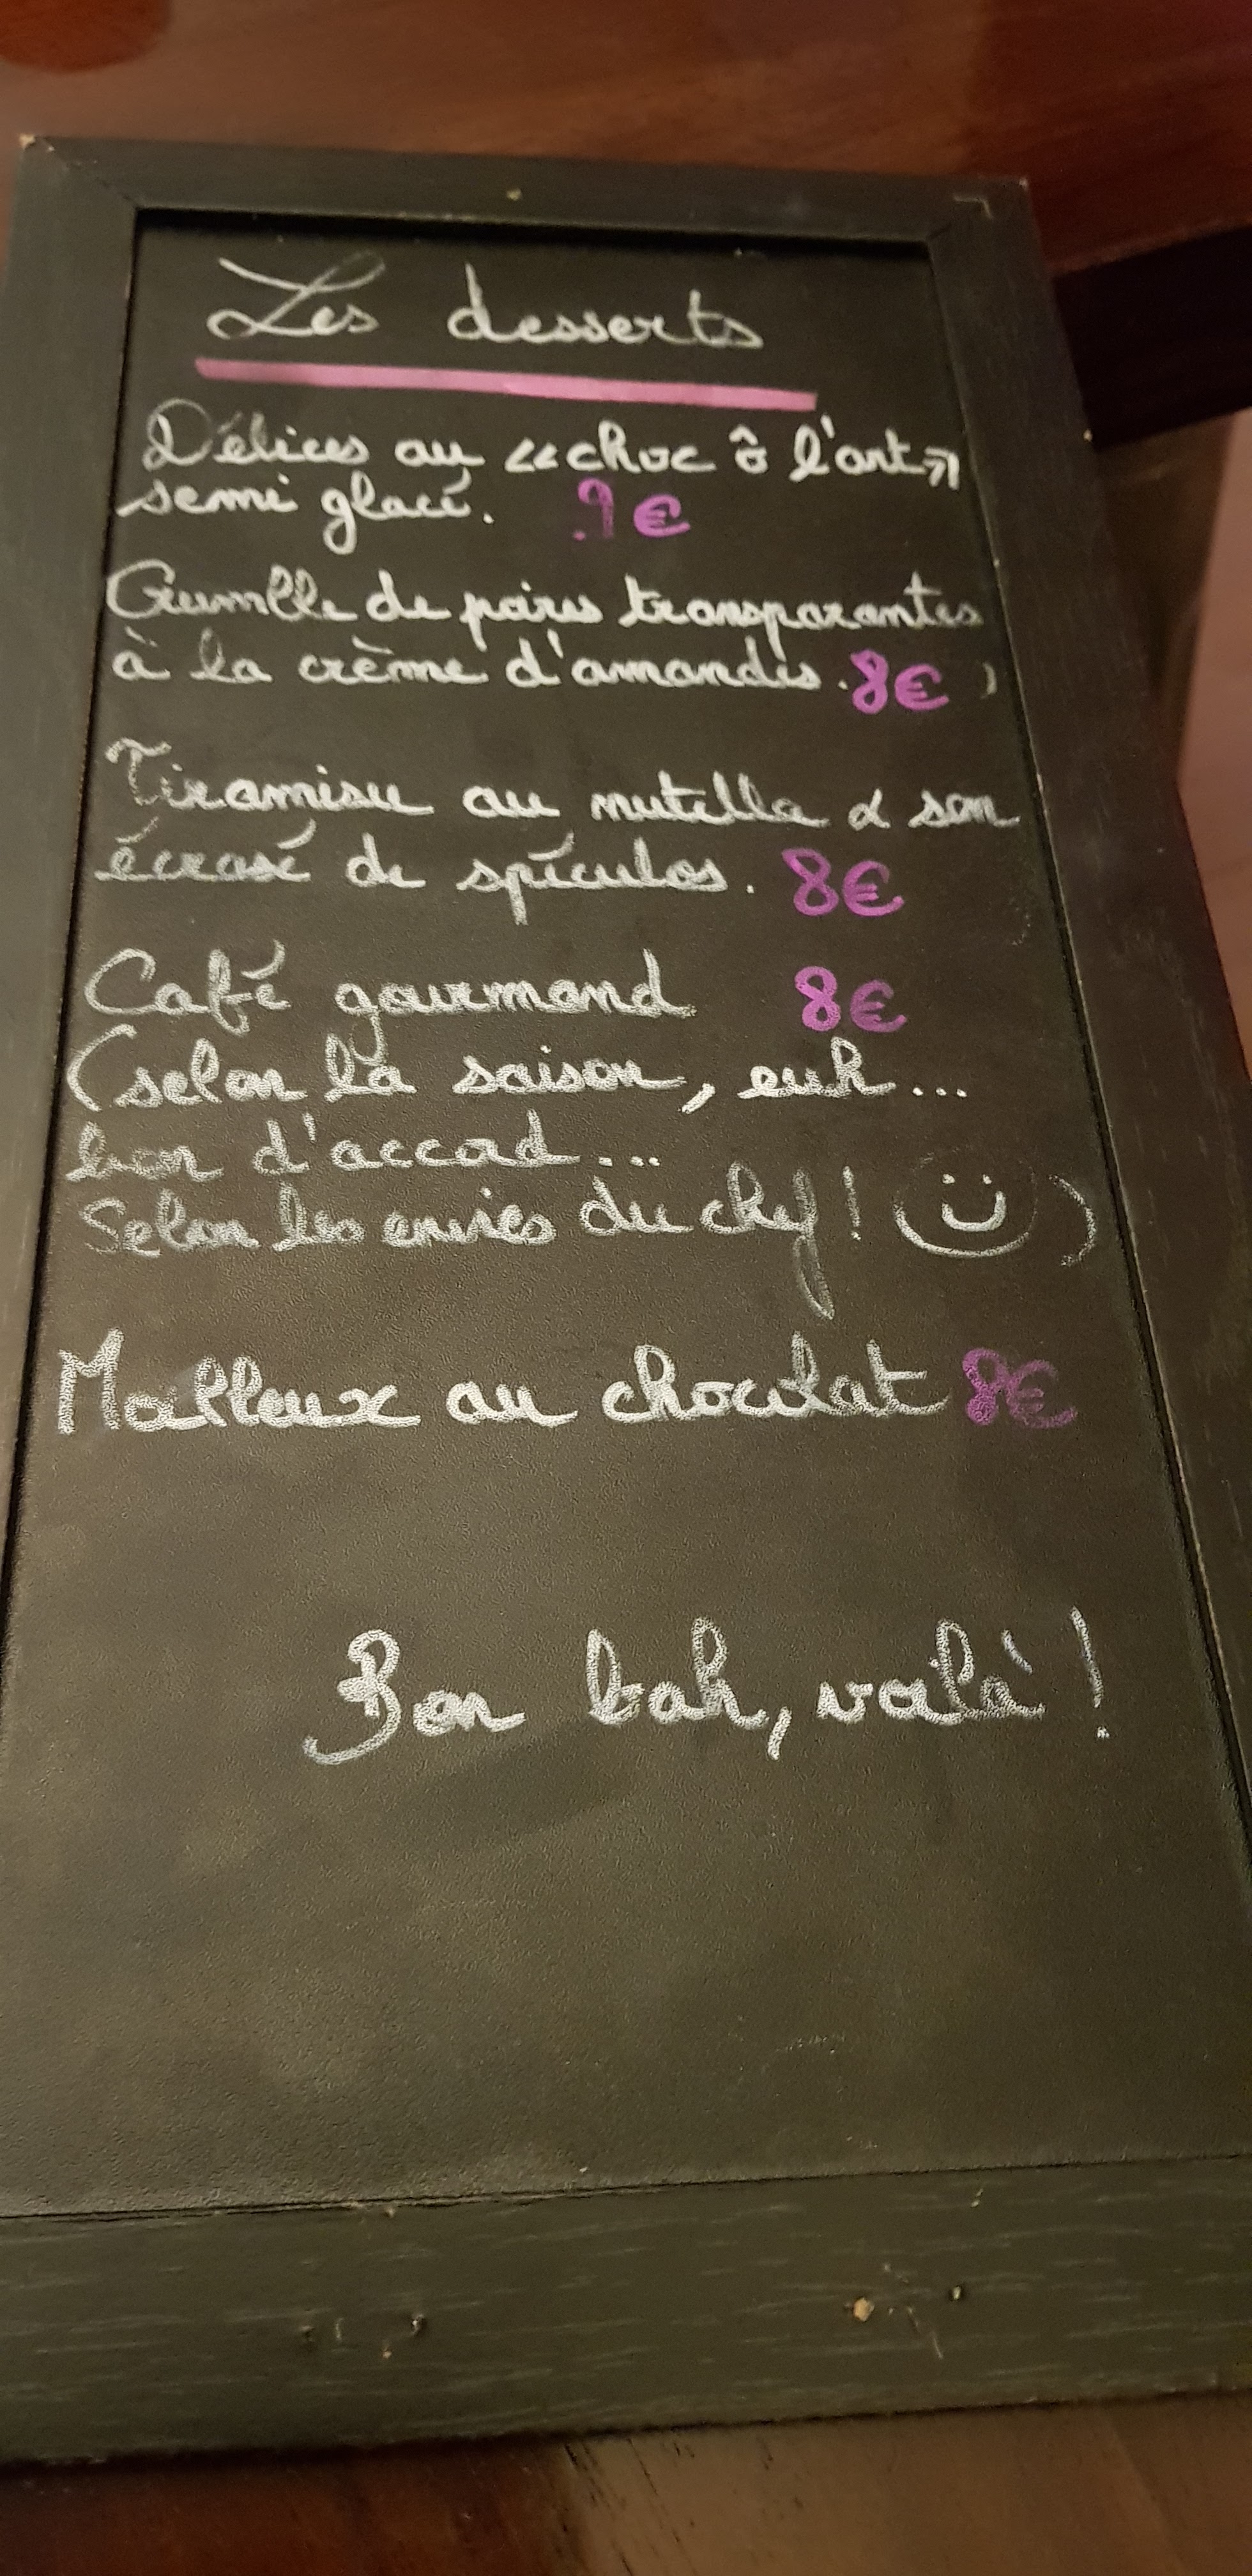 Les desserts
Délices au «choc ô l'art»
semi glacé. 9€
Crumble de poires transparantes
à la crème d'amandes. 8€
Tiramisu au nutella & son
écrasé de spéculos. 8€
Café gourmand 8€
(selon la saison, euh...
bon d'accord...
Selon les envies du chef! (ü))
Moelleux au chocolat 8€
Bon bah, voilà!